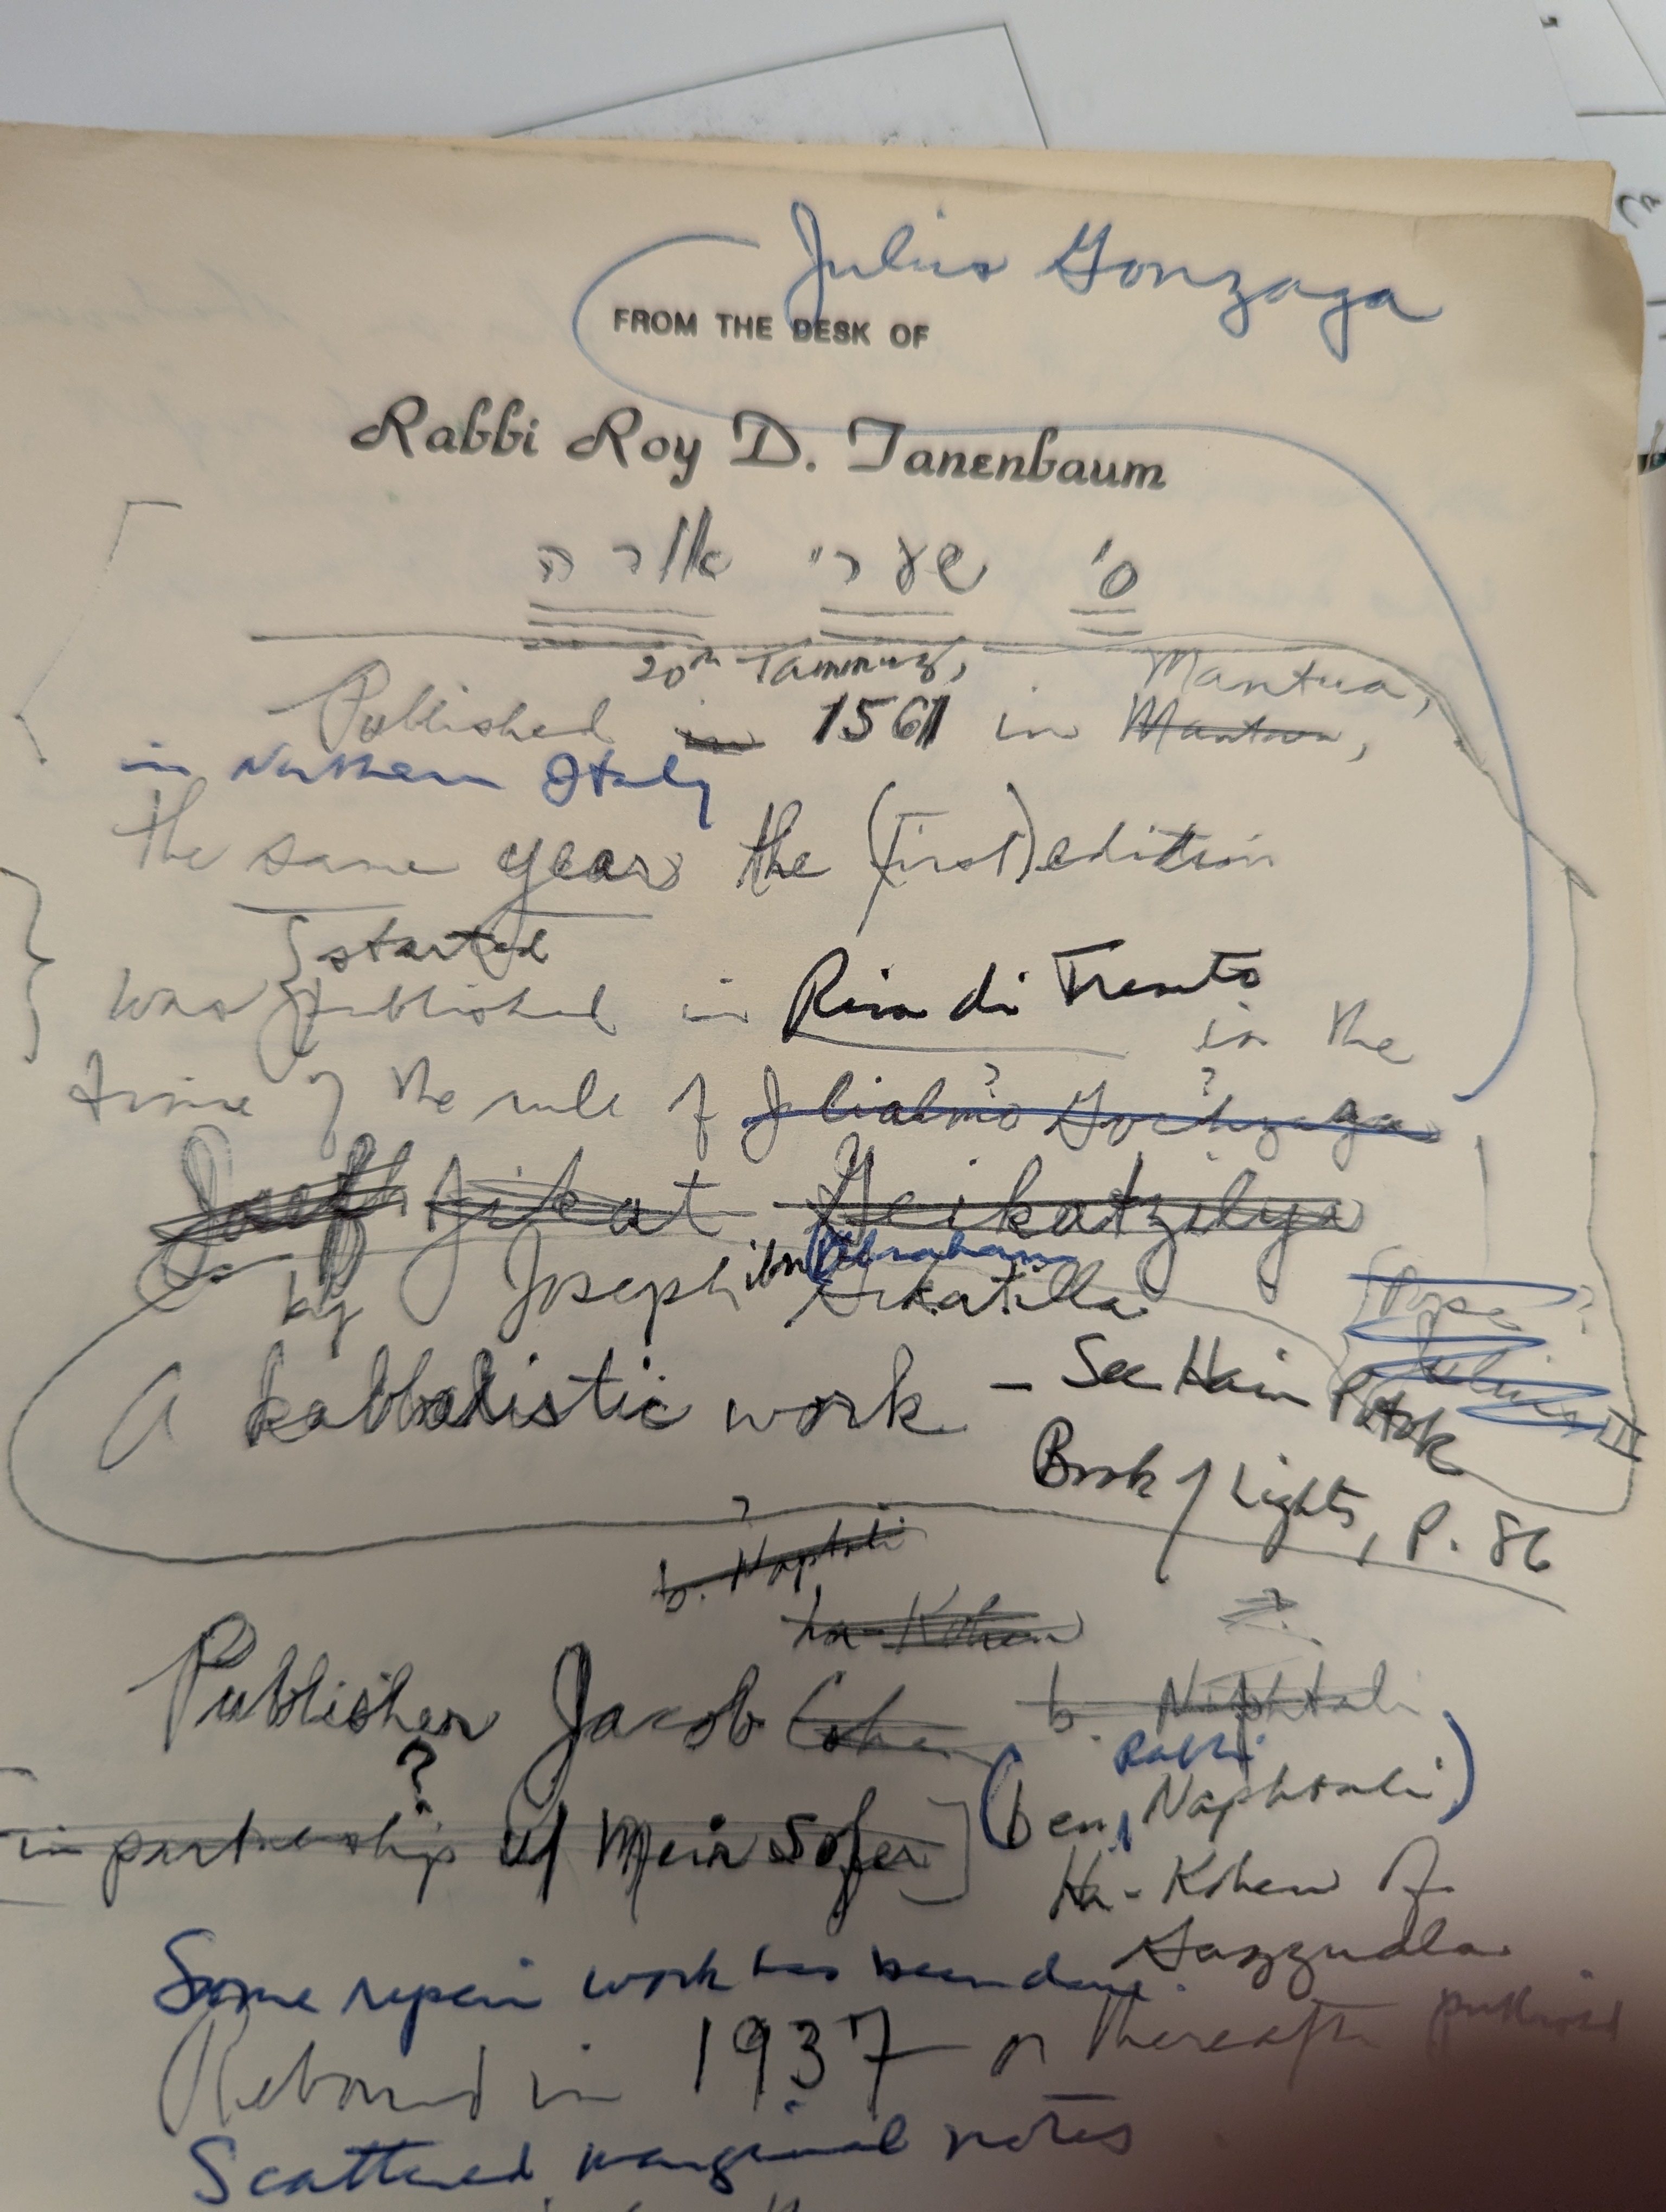 Julius Gonzaga
FROM THE DESK OF
Rabbi Roy D. Tanenbaum
ס' שערי אורה
20th Tammuz, Mantua,
Published in 1561 in Mantua,
in Northern Italy
the same year the (first) edition
started
was published in Riva di Trento
in the
time of the rule of Julialmo Gochzaga
? ?
Joseph Jikat Geikatzilya
ibn Abraham
by Joseph Gikatilla
Pope ?
Julius III
A kabbalistic work - See Haim Potok
Book of Lights, P. 86
?
b. Naphtali
ha-Kohen ?
Publisher Jacob Cohen b. Naphtali
Rabbi
? (ben Naphtali)
in partnership w/ Meir Sofer]
Ha-Kohen of
Gazzuola
Some repair work has been done.
Rebound in 1937 or thereafter
Scattered marginal notes